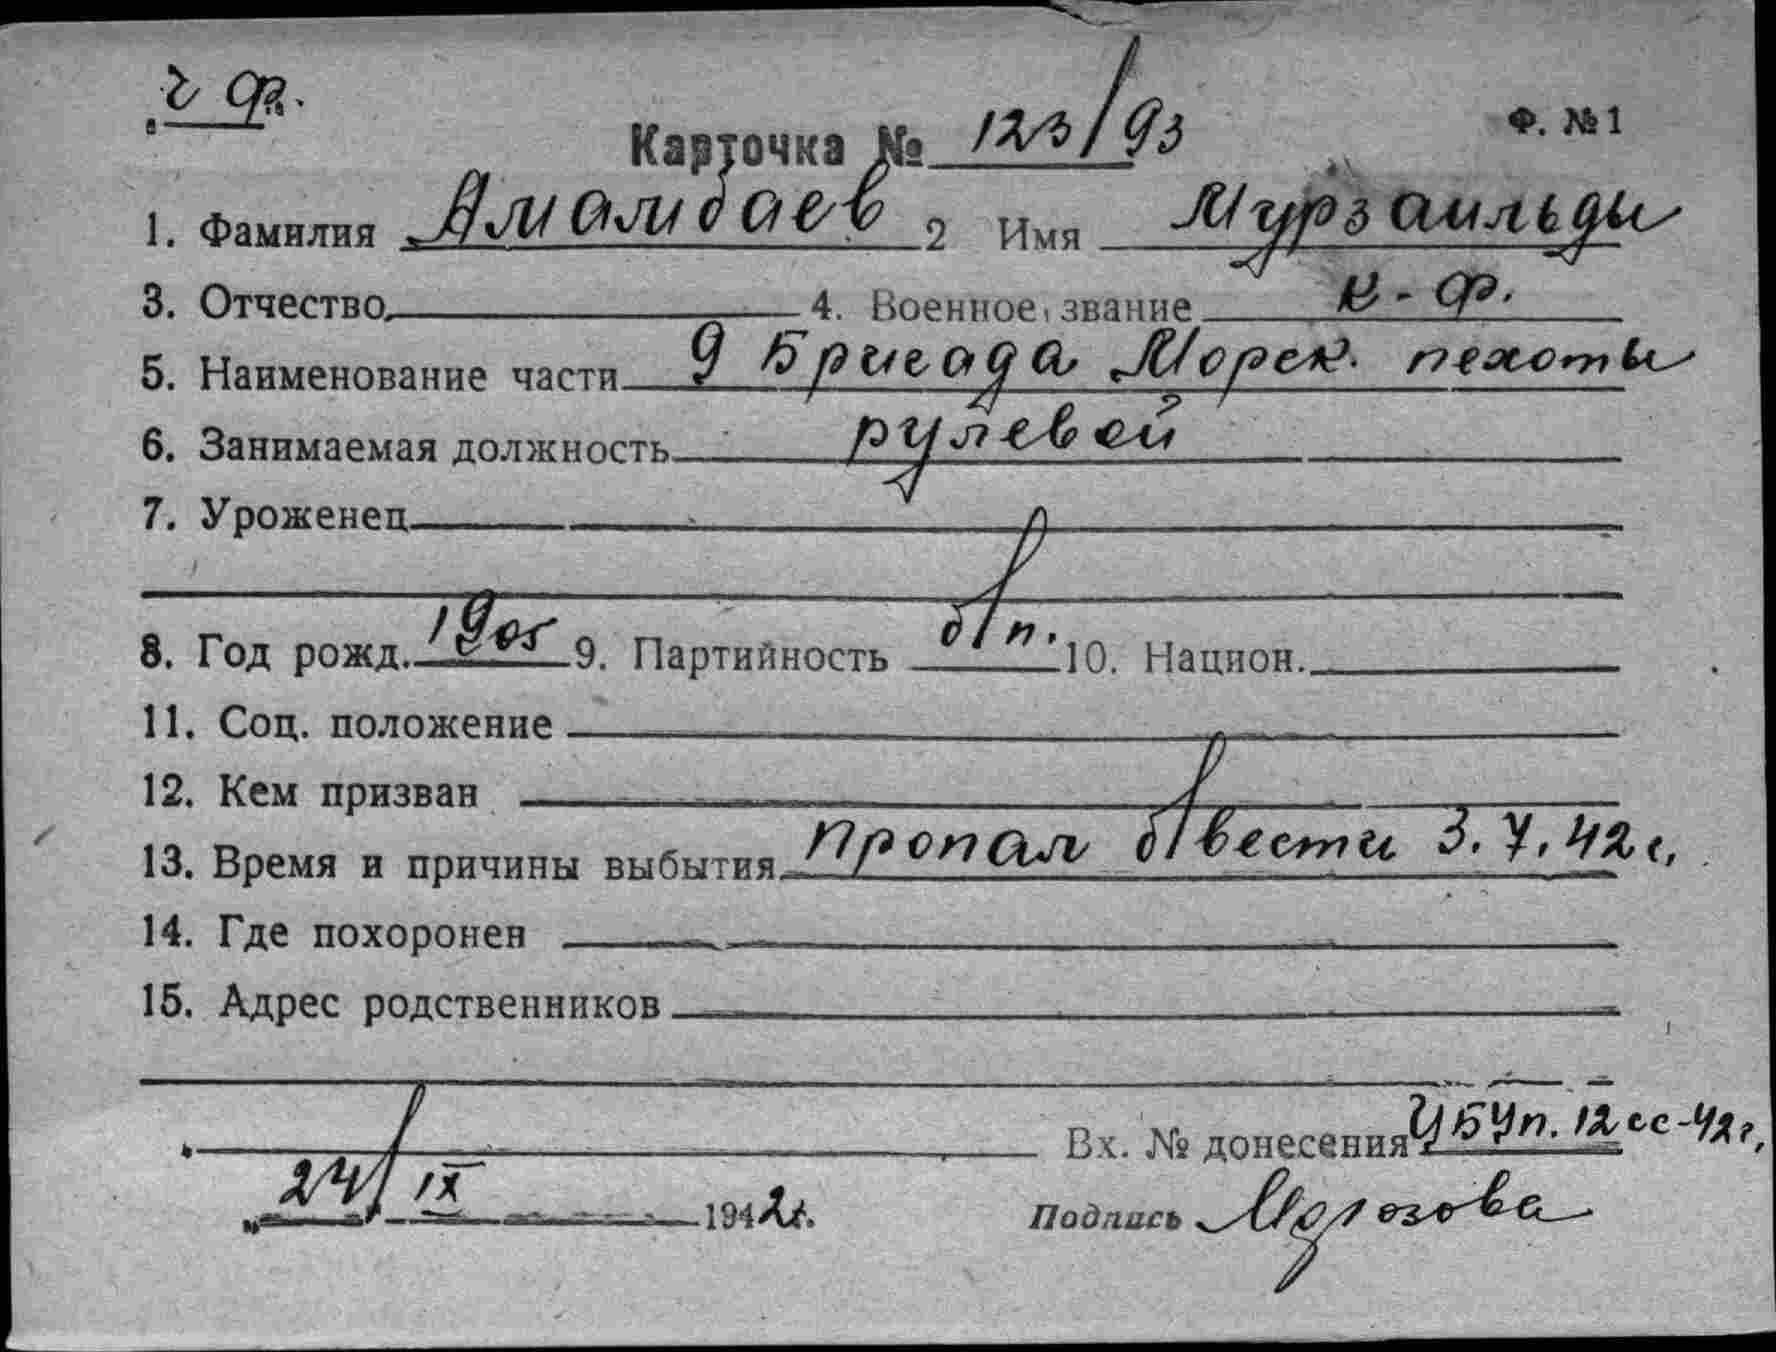 ч ф.
Карточка № 123/93 Ф. №1
1. Фамилия Амамбаев 2 Имя Мурзаильды
3. Отчество 4. Военное звание к-ф.
5. Наименование части 9 Бригада Морск. пехоты
6. Занимаемая должность рулевой
7. Уроженец
8. Год рожд. 1905 9. Партийность б/п. 10. Национ.
11. Соц. положение
12. Кем призван
13. Время и причины выбытия пропал б/вести 3.7.42г.
14. Где похоронен
15. Адрес родственников
Вх. № донесения УБУп. 12сс-42г.
24/IX 1942г. Подпись Морозова